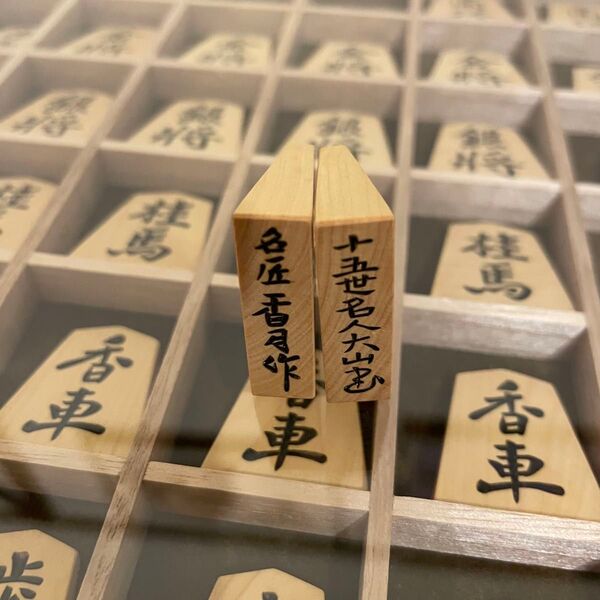 銀将
銀将
銀将
銀将
桂馬
桂馬
名匠 香月作
十五世名人大山書
香車
香車
香車
歩